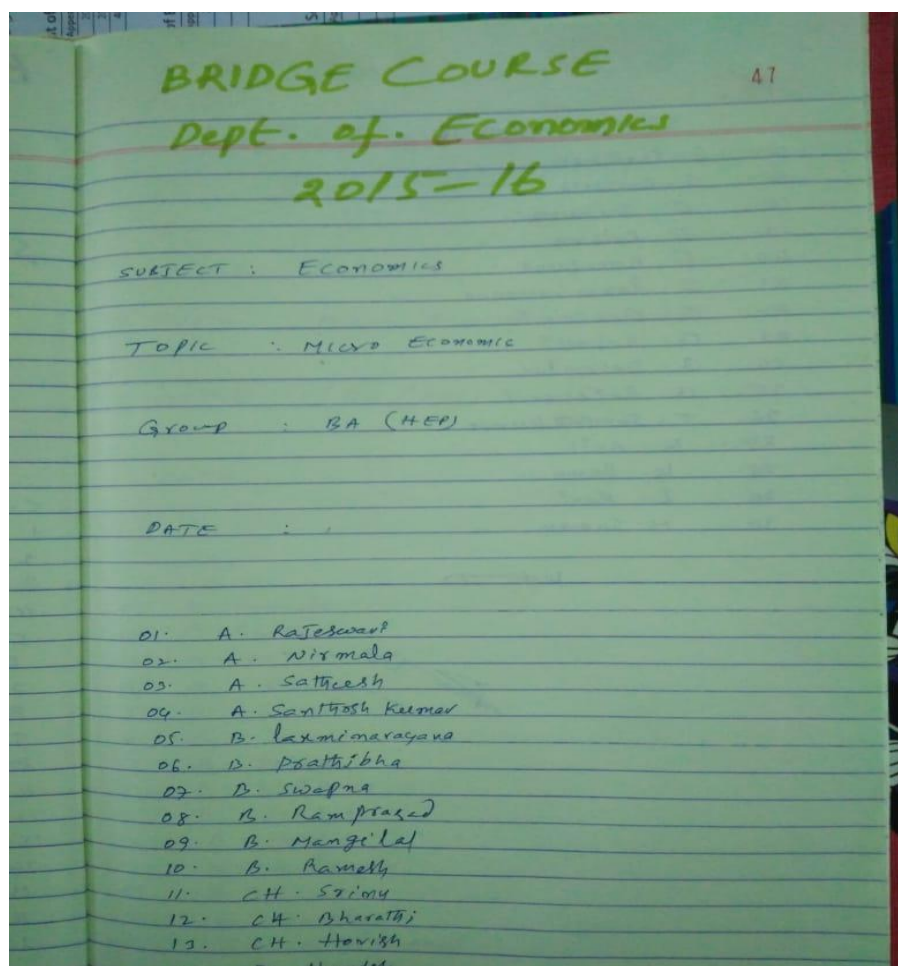 BRIDGE COURSE
47
Dept. of. Economics
2015-16
SUBJECT : Economics
Topic : Micro Economic
Group : BA (HEP)
DATE :
01. A. Rajeswari
02. A. Nirmala
03. A. Satheesh
04. A. Santhosh Kumar
05. B. laxminarayana
06. B. prathibha
07. B. Swapna
08. B. Ram prasad
09. B. Mangilal
10. B. Ramesh
11. CH. Srinu
12. CH. Bharathi
13. CH. Harish